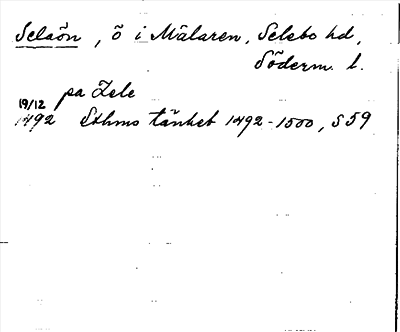 Selaön, ö i Mälaren, Selebo hd,
Söderm. l.
pa Zele
19/12
1492 Sthms tänkeb 1492-1500, S 59